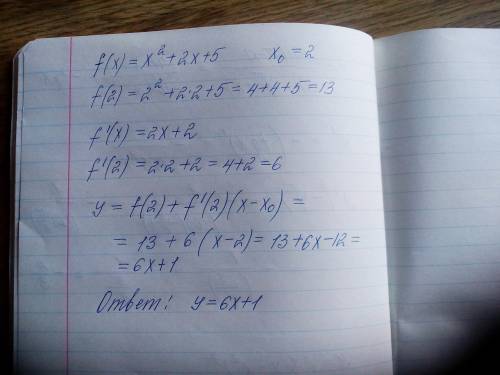 f(x) = x² + 2x + 5 x₀ = 2
f(2) = 2² + 2·2 + 5 = 4 + 4 + 5 = 13
f'(x) = 2x + 2
f'(2) = 2·2 + 2 = 4 + 2 = 6
y = f(2) + f'(2)(x - x₀) =
= 13 + 6(x - 2) = 13 + 6x - 12 =
= 6x + 1
Ответ: y = 6x + 1